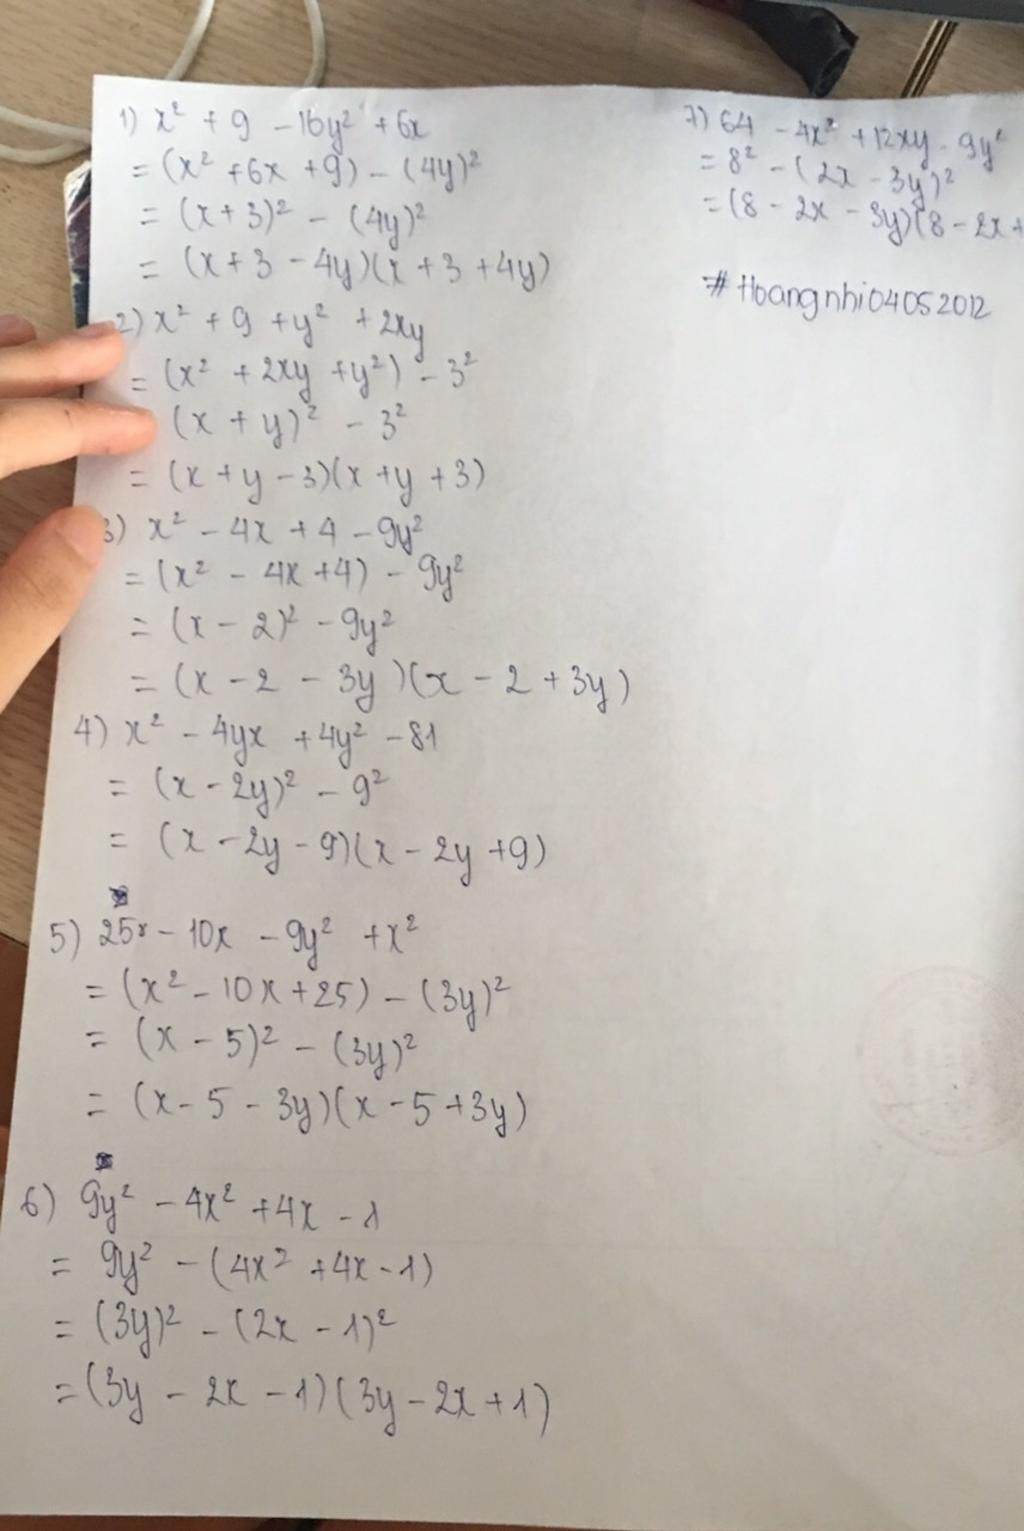 1) x² + 9 - 16y² + 6x
= (x² + 6x + 9) - (4y)²
= (x + 3)² - (4y)²
= (x + 3 - 4y)(x + 3 + 4y)
2) x² + 9 + y² + 2xy
= (x² + 2xy + y²) - 3²
(x + y)² - 3²
= (x + y - 3)(x + y + 3)
3) x² - 4x + 4 - 9y²
= (x² - 4x + 4) - 9y²
= (x - 2)² - 9y²
= (x - 2 - 3y)(x - 2 + 3y)
4) x² - 4yx + 4y² - 81
= (x - 2y)² - 9²
= (x - 2y - 9)(x - 2y + 9)
5) 25x - 10x - 9y² + x²
= (x² - 10x + 25) - (3y)²
= (x - 5)² - (3y)²
= (x - 5 - 3y)(x - 5 + 3y)
6) 9y² - 4x² + 4x - 1
= 9y² - (4x² + 4x - 1)
= (3y)² - (2x - 1)²
= (3y - 2x - 1)(3y - 2x + 1)
7) 64 - 4x² + 12xy - 9y²
= 8² - (2x - 3y)²
= (8 - 2x - 3y)(8 - 2x +
# Hoangnhi04052012